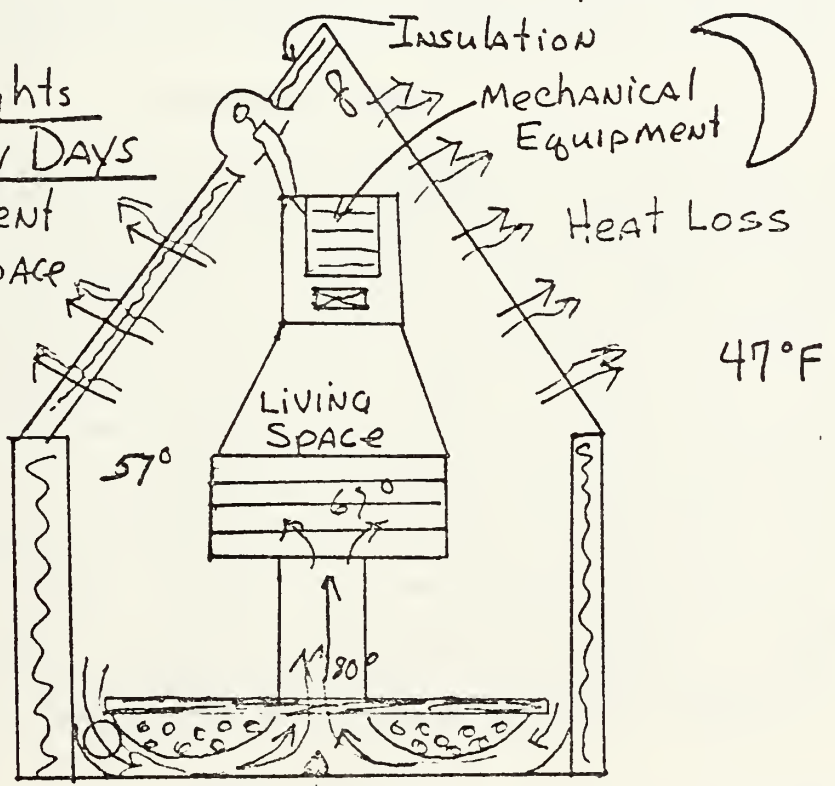 Insulation
Mechanical
Equipment
Days
Heat Loss
47°F
Living
Space
57°
67°
80°